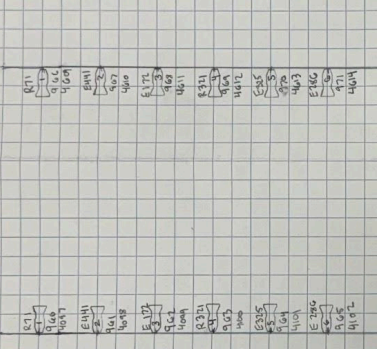 R71
1
966
4609
E441
2
967
4610
E172
3
968
4611
R321
4
969
4612
E325
5
970
4613
E286
6
971
4614
R71
1
960
4097
E441
2
961
4098
E172
3
962
4099
R321
4
963
4100
E325
5
964
4101
E286
6
965
4102